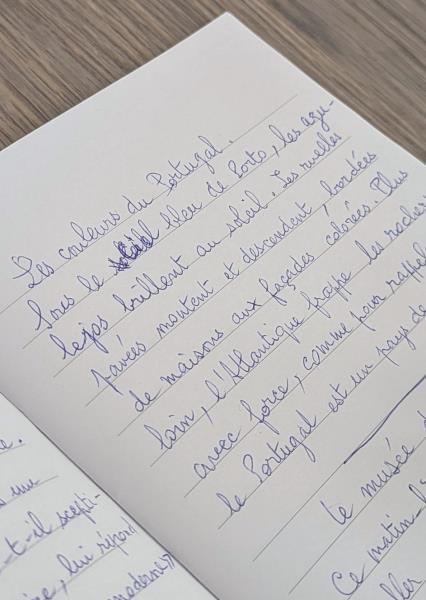 Les couleurs du Portugal.
Sous le ciel bleu de Porto, les azu-
lejos brillent au soleil. Les ruelles
pavées montent et descendent, bordées
de maisons aux façades colorées. Plus
loin, l'Atlantique frappe les rochers
avec force, comme pour rappel
le Portugal est un pays de
le musée d
Ce matin-l
ller
e.
un
t-il scepti-
re, lui répon
moderne